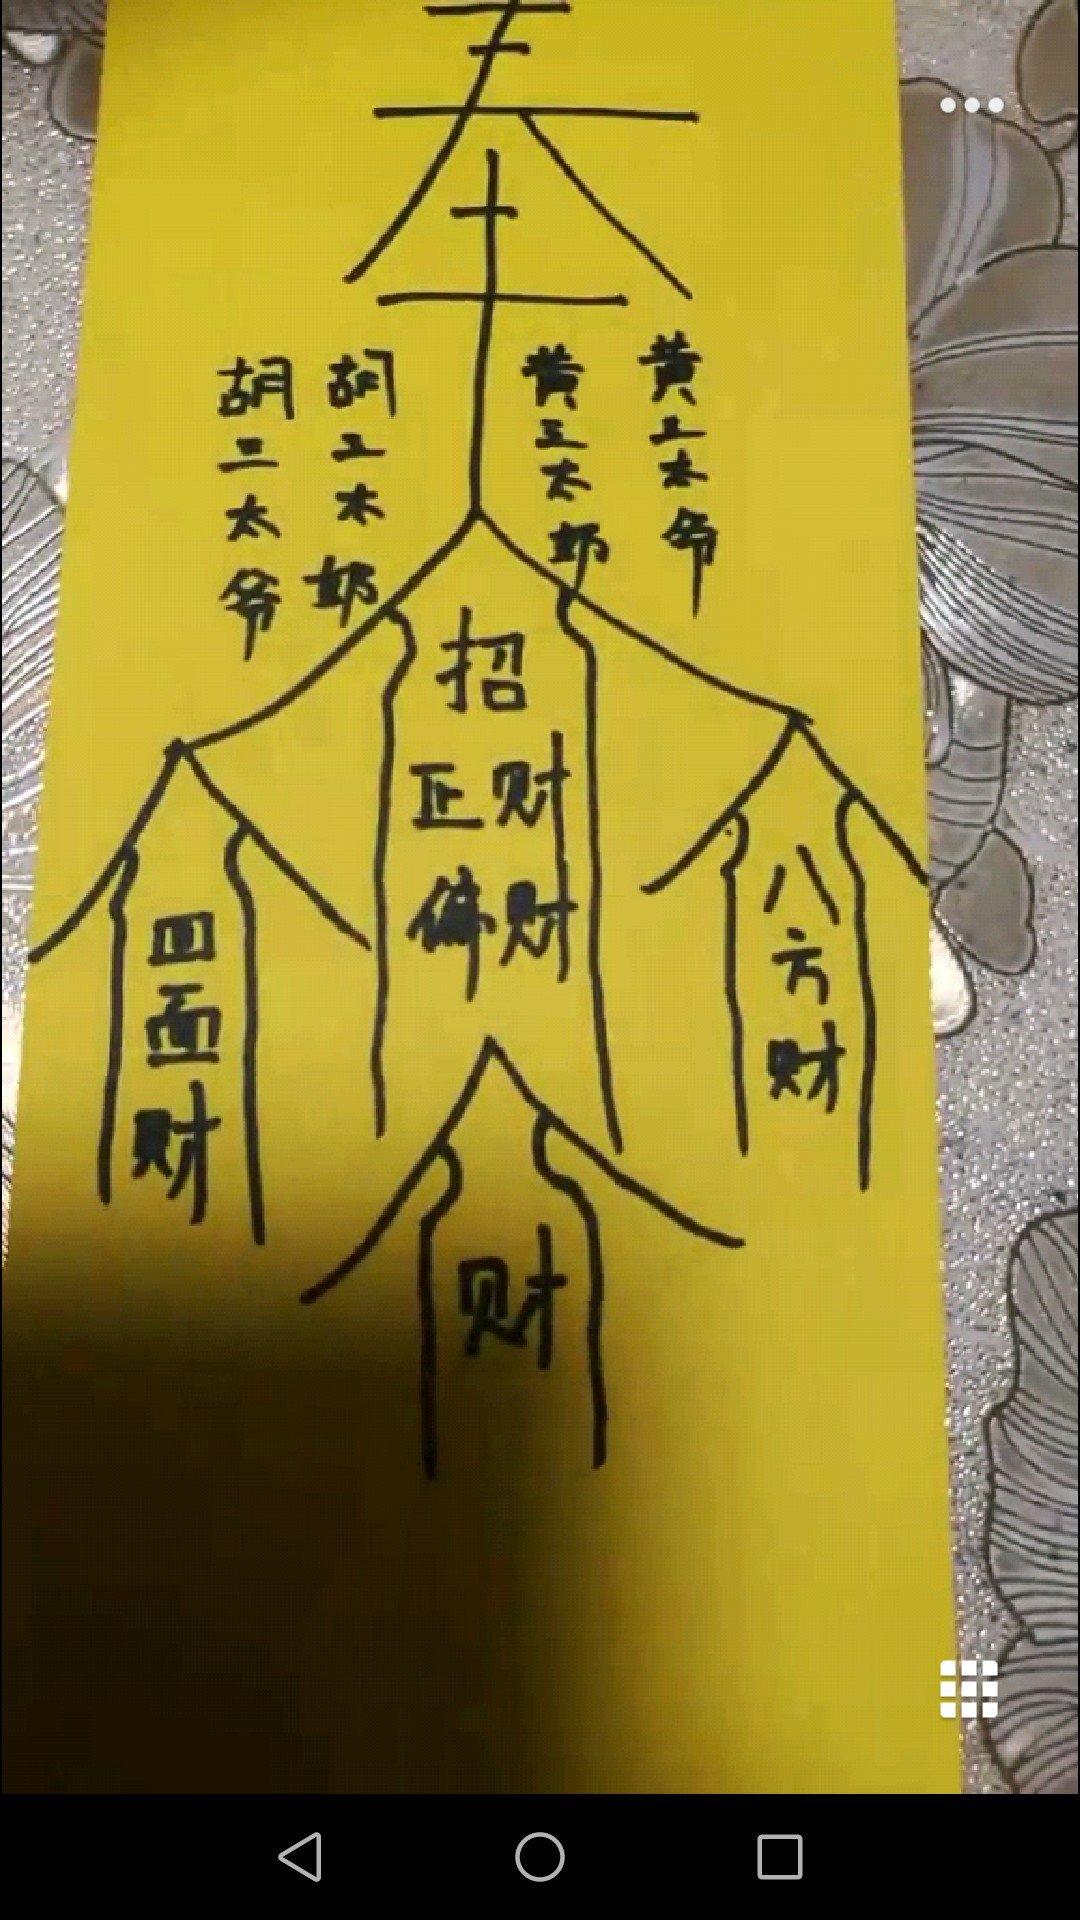 奉
胡二太爷
胡三太奶
黄三太奶
黄三太爷
招
正财
偏财
四面财
八方财
财